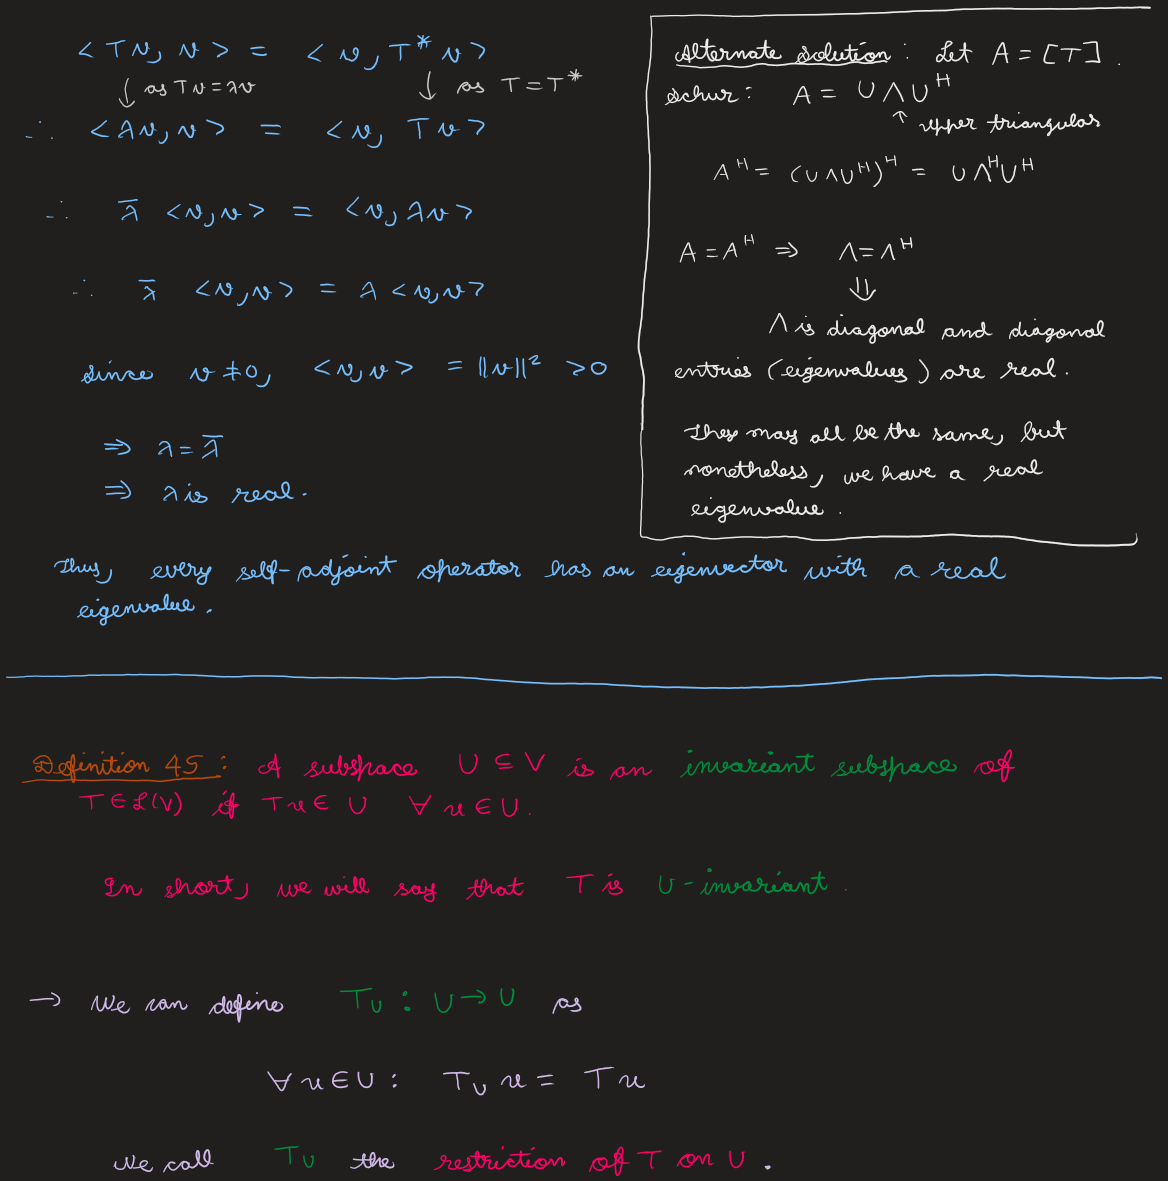 < Tv, v > = < v, T* v >
↓ as Tv = λv ↓ as T = T*
∴ < λv, v > = < v, Tv >
∴ λ̄ < v, v > = < v, λv >
∴ λ̄ < v, v > = λ < v, v >
since v ≠ 0, < v, v > = ||v||² > 0
⇒ λ = λ̄
⇒ λ is real.
Alternate solution : Let A = [T].
Schur: A = U Λ Uᴴ
↑ upper triangular
Aᴴ = (U Λ Uᴴ)ᴴ = U Λᴴ Uᴴ
A = Aᴴ ⇒ Λ = Λᴴ
⇓
Λ is diagonal and diagonal
entries (eigenvalues) are real.
They may all be the same, but
nonetheless, we have a real
eigenvalue.
Thus, every self-adjoint operator has an eigenvector with a real
eigenvalue.
Definition 45 : A subspace U ⊆ V is an invariant subspace of
T ∈ ℒ(V) if Tu ∈ U ∀ u ∈ U.
In short, we will say that T is U-invariant.
→ We can define T_U : U → U as
∀ u ∈ U : T_U u = Tu
We call T_U the restriction of T on U.